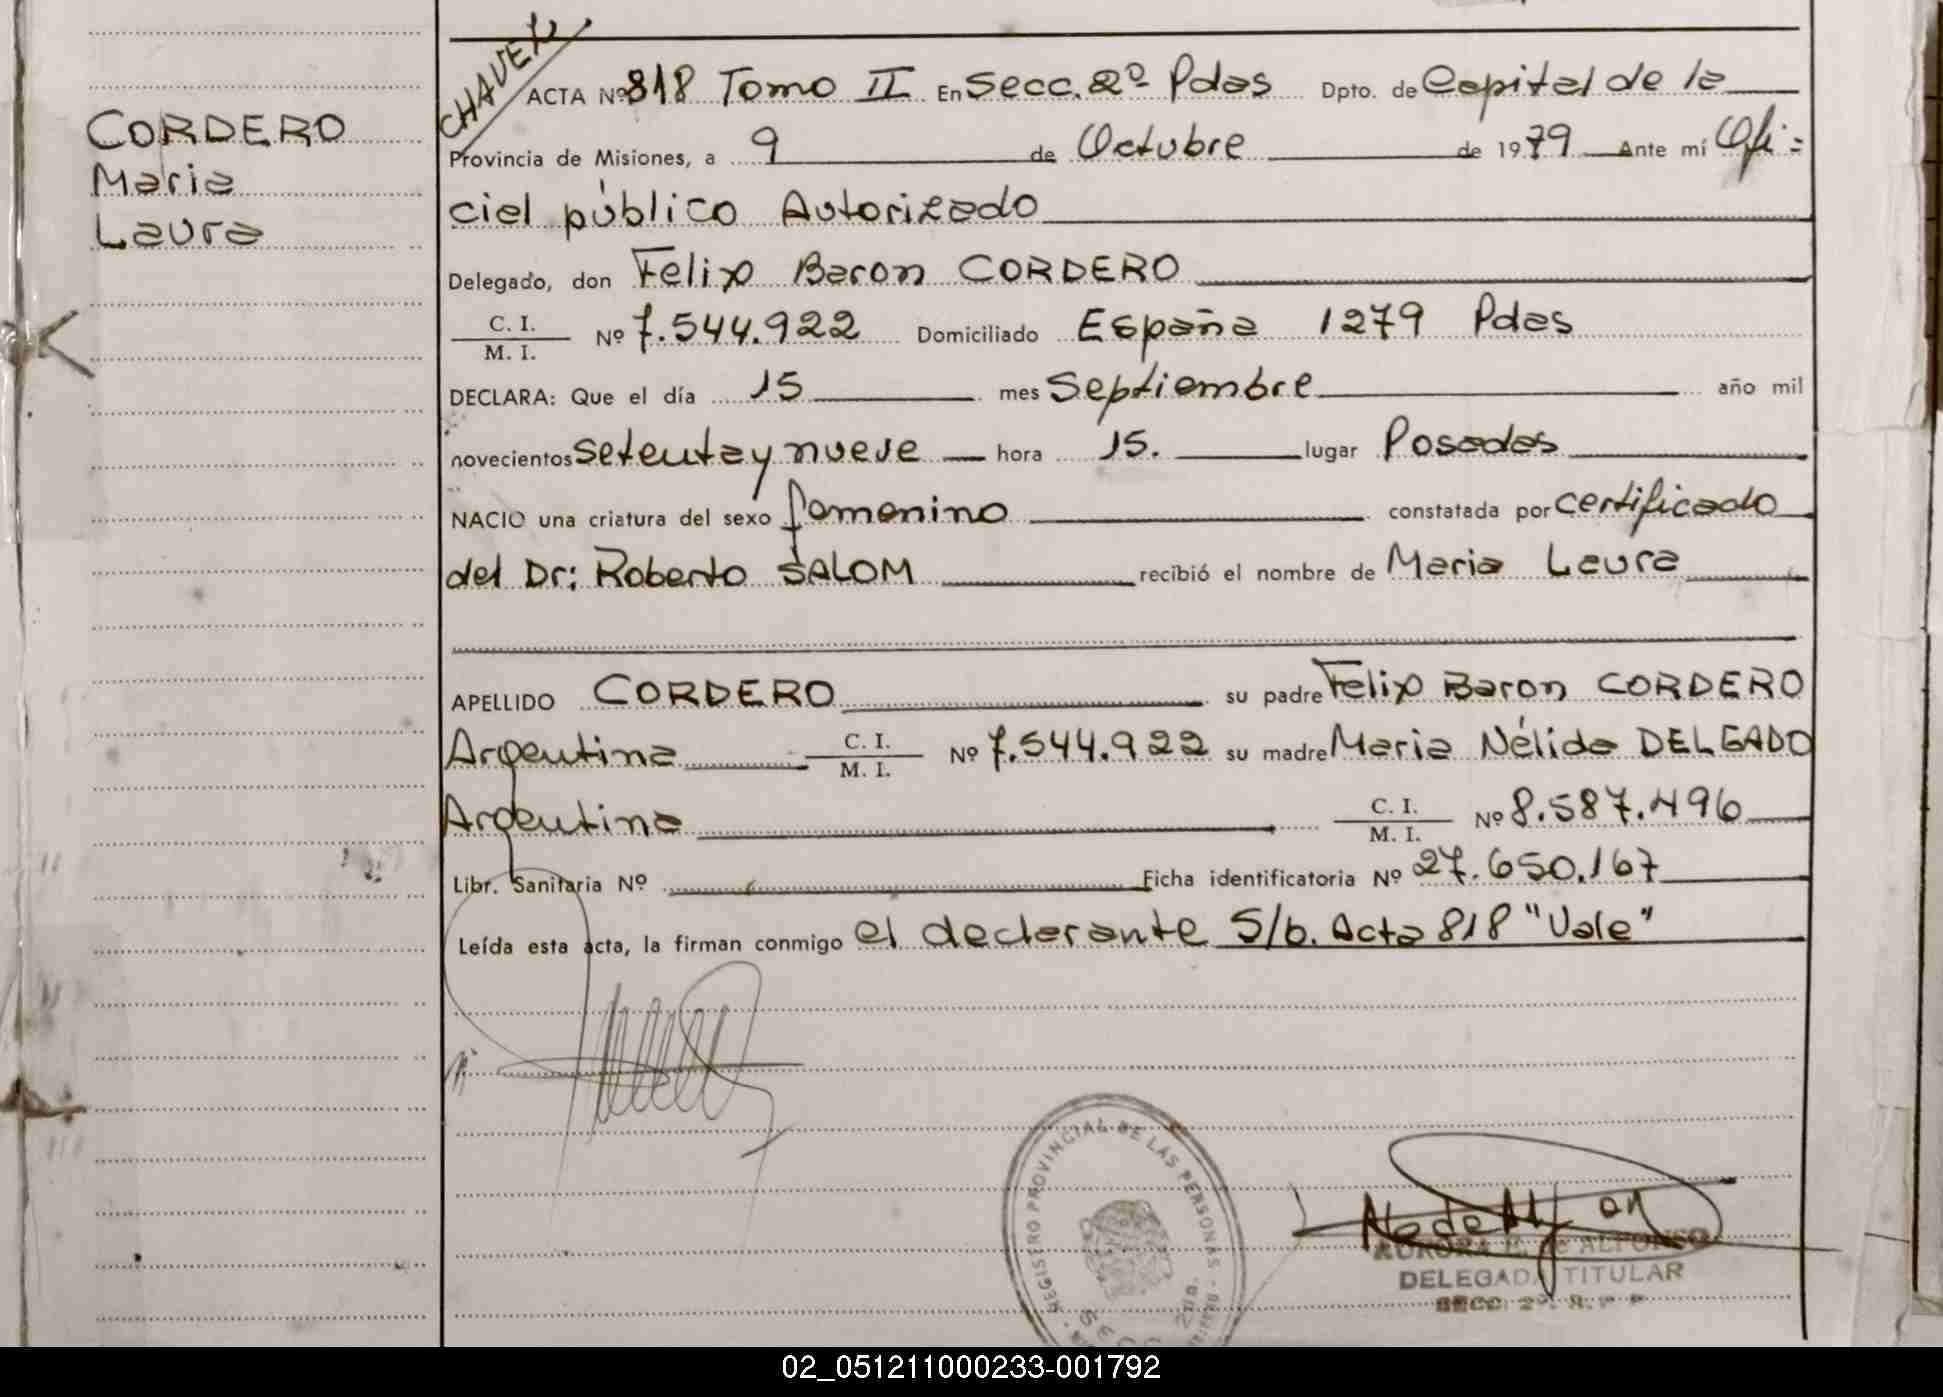 CORDERO
Maria
Laura
CHAVEZ
ACTA Nº 818 Tomo II En Secc. 2º Pdas Dpto. de Capital de la
Provincia de Misiones, a 9 de Octubre de 1979 Ante mí Ofi=
cial público Autorizado
Delegado, don Felix Baron CORDERO
C. I.
M. I. Nº 7.544.922 Domiciliado España 1279 Pdas
DECLARA: Que el día 15 mes Septiembre año mil
novecientos setenta y nueve hora 15. lugar Posadas
NACIO una criatura del sexo femenino constatada por certificado
del Dr: Roberto SALOM recibió el nombre de Maria Laura
APELLIDO CORDERO su padre Felix Baron CORDERO
Argentina C. I.
M. I. Nº 7.544.922 su madre Maria Nélida DELGADO
Argentina C. I.
M. I. Nº 8.587.496
Libr. Sanitaria Nº Ficha identificatoria Nº 27.650.167
Leída esta acta, la firman conmigo el declarante S/b. Acta 818 "Vale"
REGISTRO PROVINCIAL DE LAS PERSONAS
AURORA de ALFONSO
DELEGADA TITULAR
SECC. 2º
02_051211000233-001792